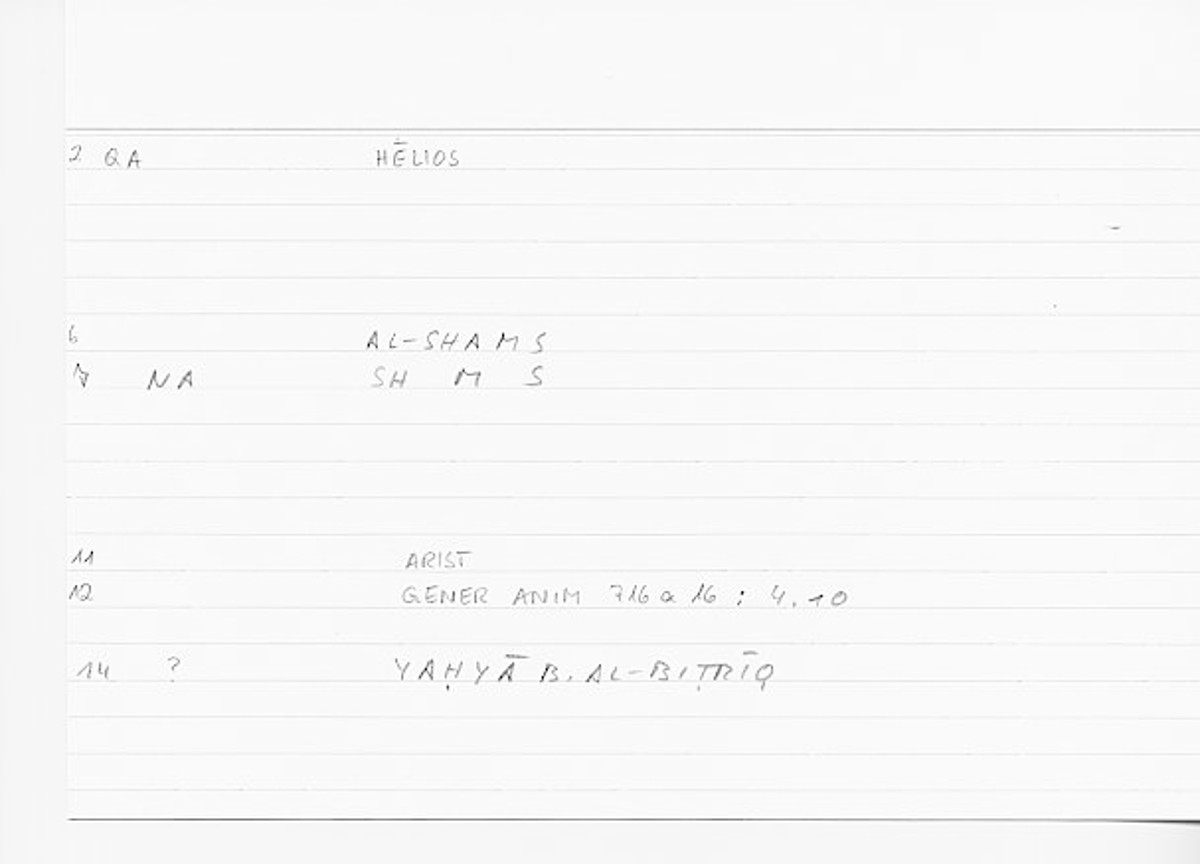 2 QA HĒLIOS
6 AL-SHAMS
7 NA SH M S
11 ARIST
12 GENER ANIM 716 a 16 : 4.10
14 ? YAḤYĀ B. AL-BIṬRĪQ